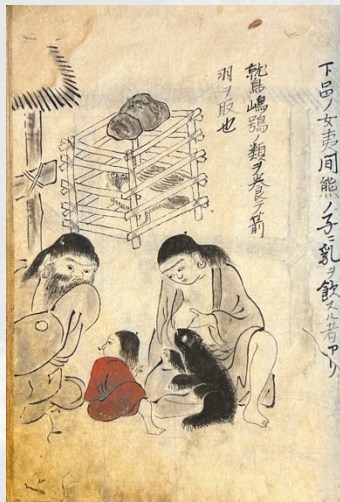 下邑ノ女夷間熊ノ子ニ乳ヲ飲スル者アリ
鷲ノ類ヲ養テ箭
羽ヲ取也